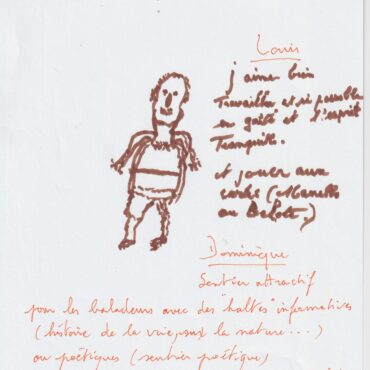 Louis
j'aime bien
Travailler et si possible
en gaité et l'esprit
Tranquille.
et jouer aux
cartes (Manille
ou Belote.)
Dominique
Sentier attractif
pour les baladeurs avec des "haltes" informatives
(histoire de la voie, sur la nature...)
ou poëtiques (sentier poëtique)